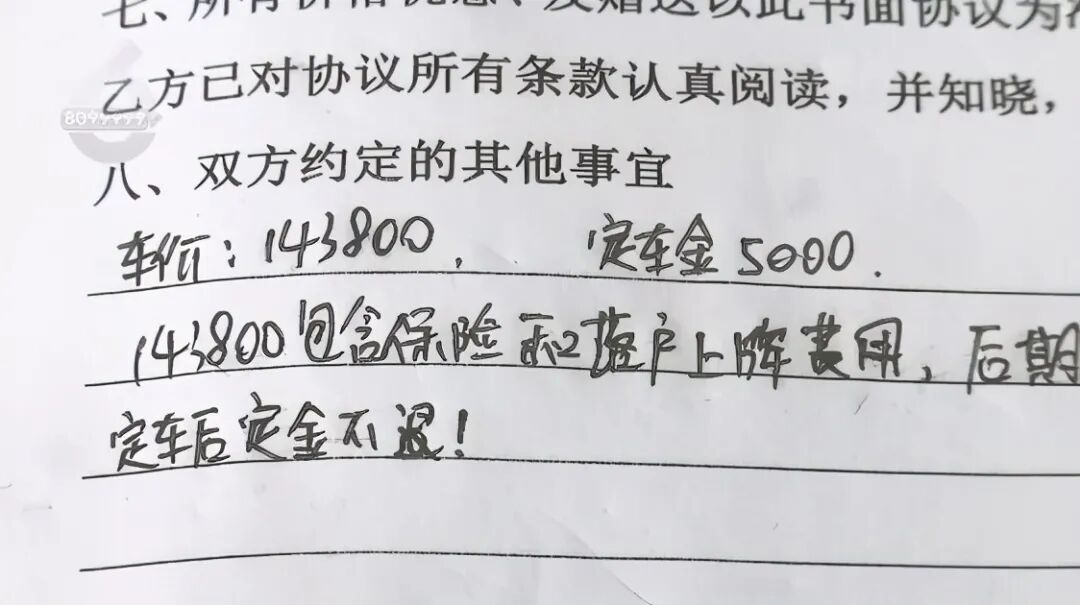 七、所有价格优惠、及赠送以此书面协议为准
乙方已对协议所有条款认真阅读，并知晓，
8099999
八、双方约定的其他事宜
车价：143800，定车金5000．
143800包含保险和落户上牌费用，后期
定车后定金不退！